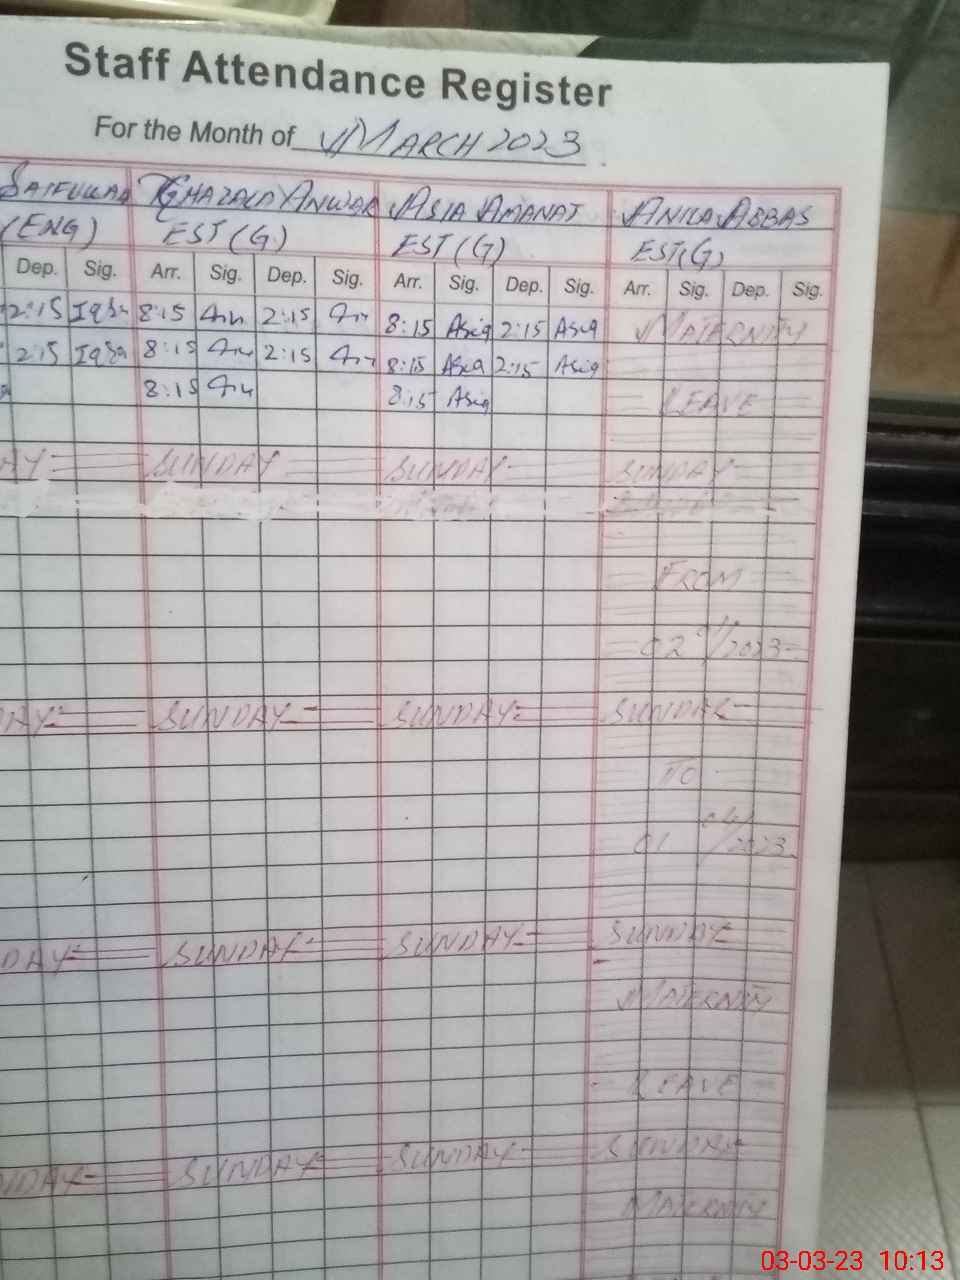 Staff Attendance Register
For the Month of MARCH 2023
SAIFULLAH GHAZALA ANWAR ASIA AMANAT ANILA ABBAS
(ENG) EST (G) EST (G) EST(G)
Dep. Sig. Arr. Sig. Dep. Sig. Arr. Sig. Dep. Sig. Arr. Sig. Dep. Sig.
2:15 Iqra 8:15 2:15 8:15 Asia 2:15 Asia MATERNITY
2:15 Iqra 8:15 2:15 8:15 Asia 2:15 Asia
8:15 8:15 Asia LEAVE
AY SUNDAY SUNDAY SUNDAY
FROM
02 01/2023
DAY SUNDAY SUNDAY SUNDAY
TO
01 04/2023
DAY SUNDAY SUNDAY SUNDAY
MATERNITY
LEAVE
NDAY SUNDAY SUNDAY SUNDAY
MATERNITY
03-03-23 10:13